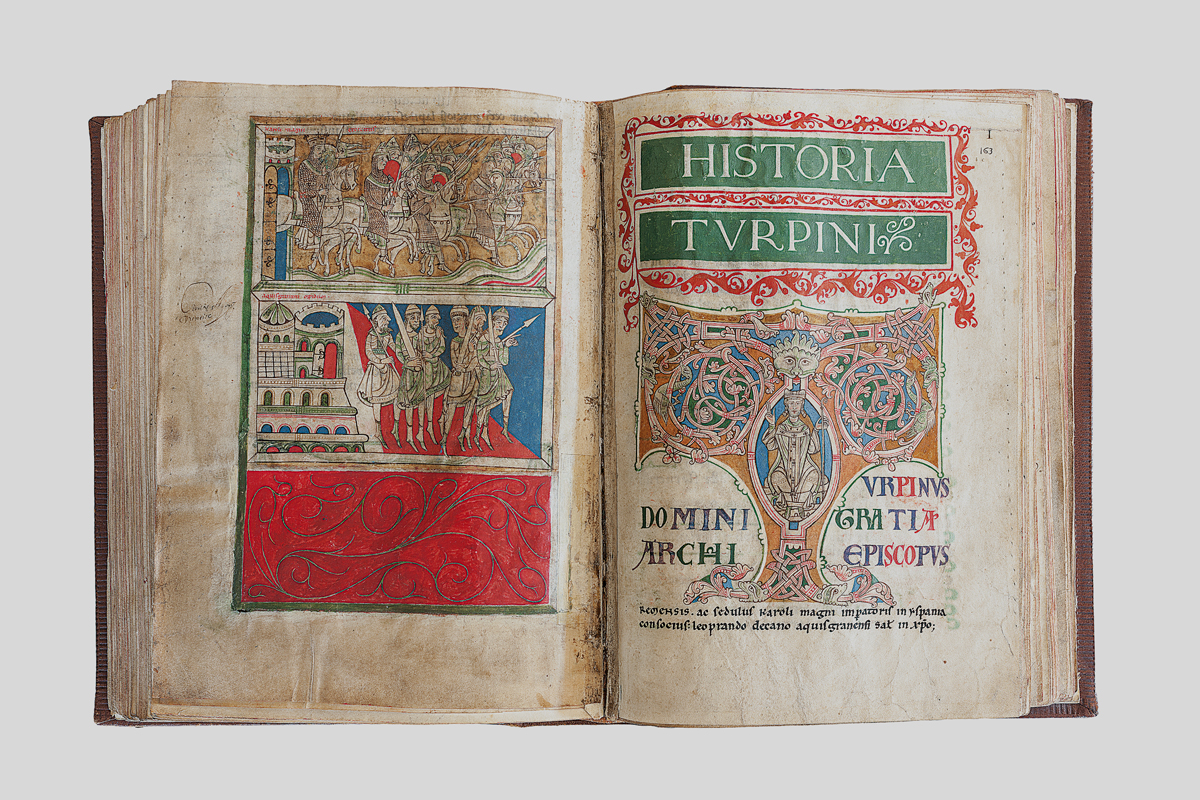 HISTORIA
TVRPINI
I
163
VRPINVS
DOMINI GRATIA
ARCHI EPISCOPVS
REMENSIS. ac sedulus Karoli magni impatoris in yspania
consocius: leoprando decano aquisgranensi sat in xpo;